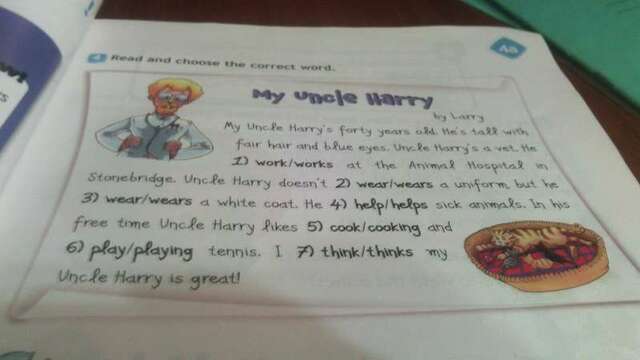 Aa
4 Read and choose the correct word.
My Uncle Harry
by Larry
My Uncle Harry's forty years old. He's tall with
fair hair and blue eyes. Uncle Harry's a vet. He
1) work/works at the Animal Hospital in
Stonebridge. Uncle Harry doesn't 2) wear/wears a uniform, but he
3) wear/wears a white coat. He 4) help/helps sick animals. In his
free time Uncle Harry likes 5) cook/cooking and
6) play/playing tennis. I 7) think/thinks my
Uncle Harry is great!